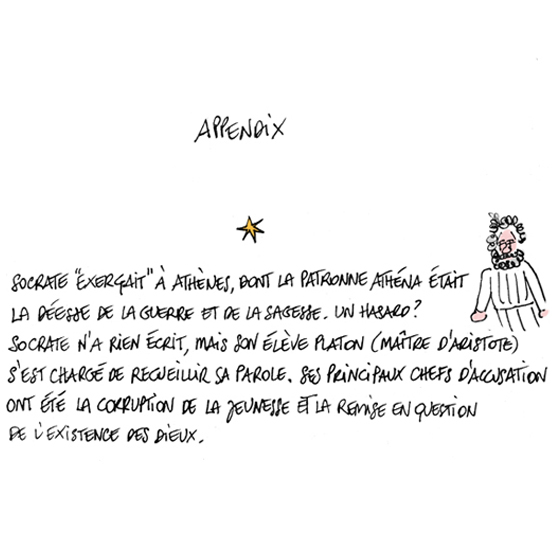 APPENDIX
SOCRATE "EXERÇAIT" À ATHÈNES, DONT LA PATRONNE ATHÉNA ÉTAIT
LA DÉESSE DE LA GUERRE ET DE LA SAGESSE. UN HASARD?
SOCRATE N'A RIEN ÉCRIT, MAIS SON ÉLÈVE PLATON (MAÎTRE D'ARISTOTE)
S'EST CHARGÉ DE RECUEILLIR SA PAROLE. SES PRINCIPAUX CHEFS D'ACCUSATION
ONT ÉTÉ LA CORRUPTION DE LA JEUNESSE ET LA REMISE EN QUESTION
DE L'EXISTENCE DES DIEUX.